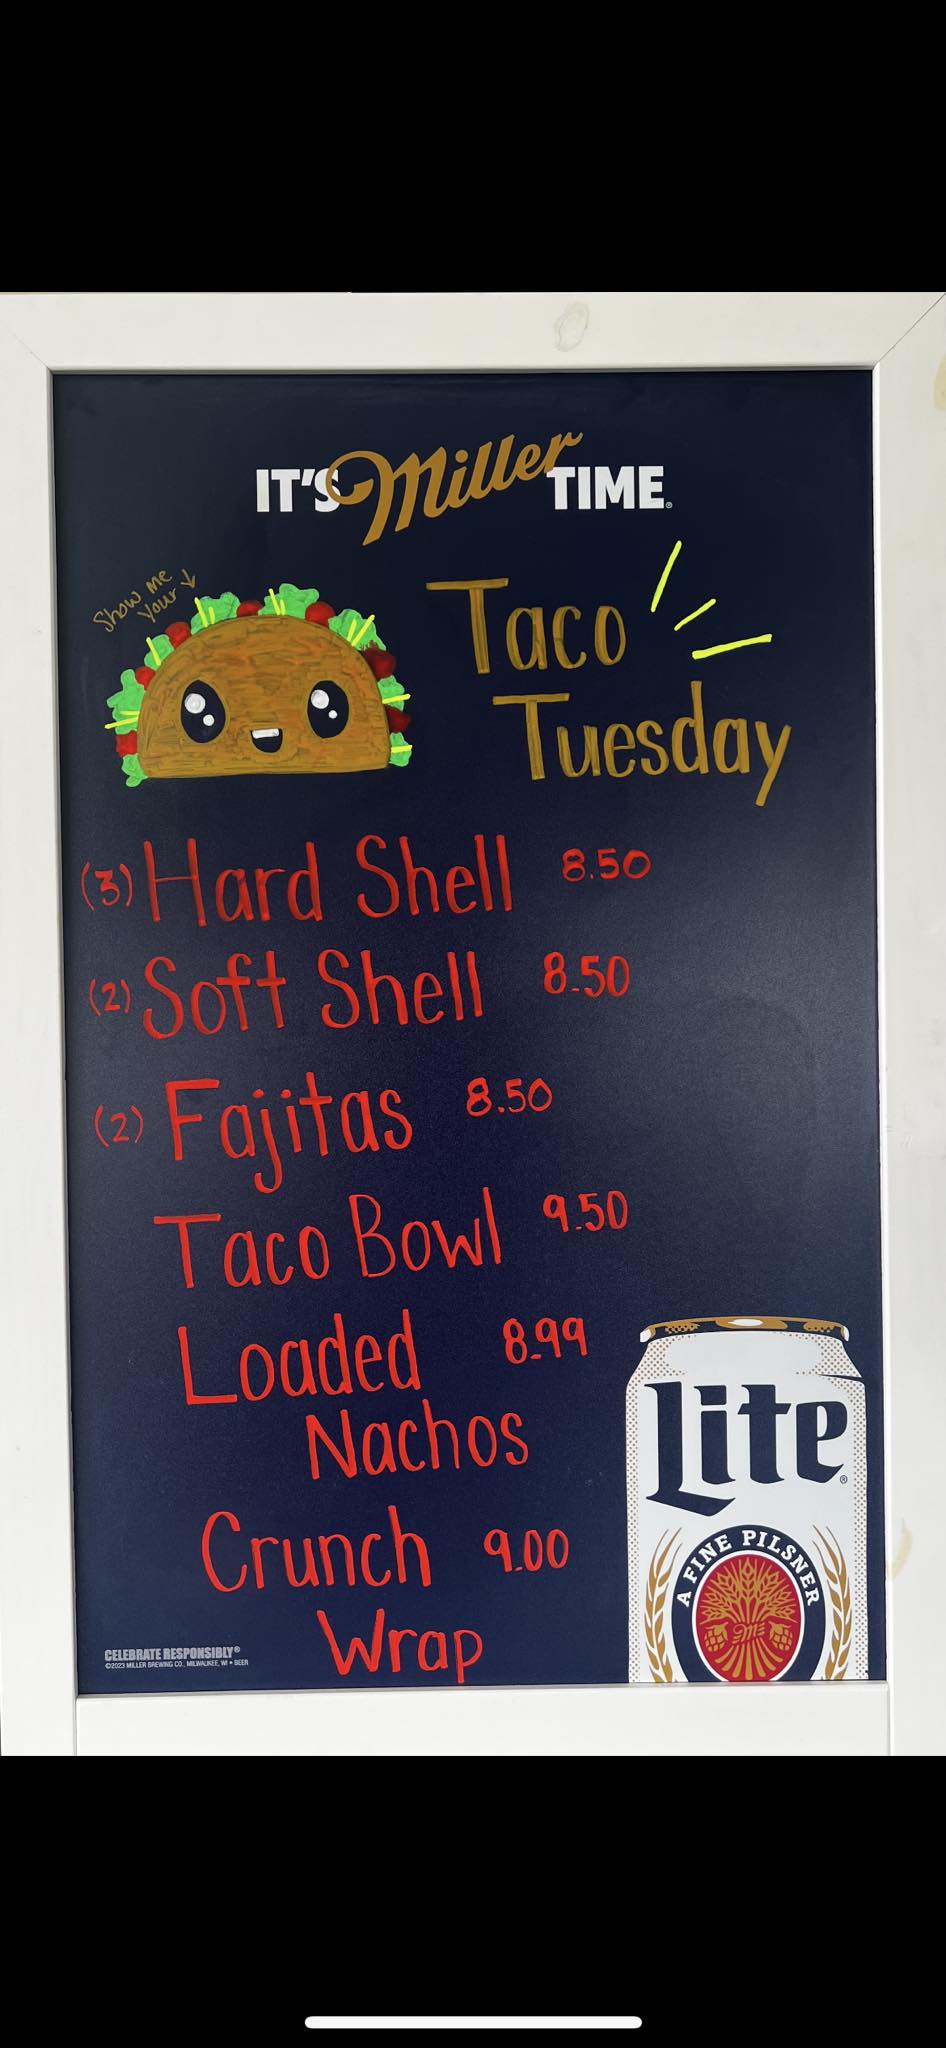 IT'S Miller TIME®
Show me
your ↓
Taco
Tuesday
(3) Hard Shell 8.50
(2) Soft Shell 8.50
(2) Fajitas 8.50
Taco Bowl 9.50
Loaded 8.99
Nachos
Crunch 9.00
Wrap
Lite®
A FINE PILSNER
CELEBRATE RESPONSIBLY®
©2023 MILLER BREWING CO., MILWAUKEE, WI • BEER